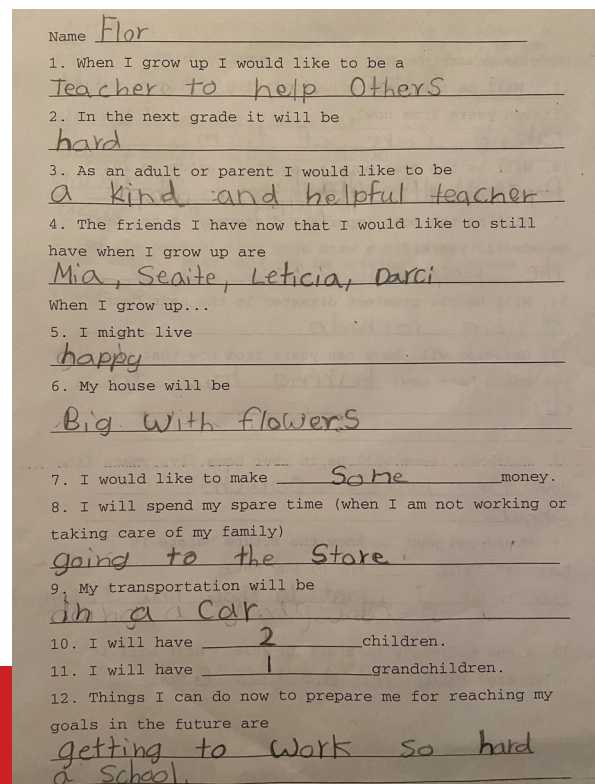 Name Flor
1. When I grow up I would like to be a
Teacher to help Others
2. In the next grade it will be
hard
3. As an adult or parent I would like to be
a kind and helpful teacher
4. The friends I have now that I would like to still
have when I grow up are
Mia, Seaite, Leticia, Darci
When I grow up...
5. I might live
happy
6. My house will be
Big with flowers
7. I would like to make Some money.
8. I will spend my spare time (when I am not working or
taking care of my family)
going to the Store.
9. My transportation will be
in a Car
10. I will have 2 children.
11. I will have 1 grandchildren.
12. Things I can do now to prepare me for reaching my
goals in the future are
getting to work so hard
a School.